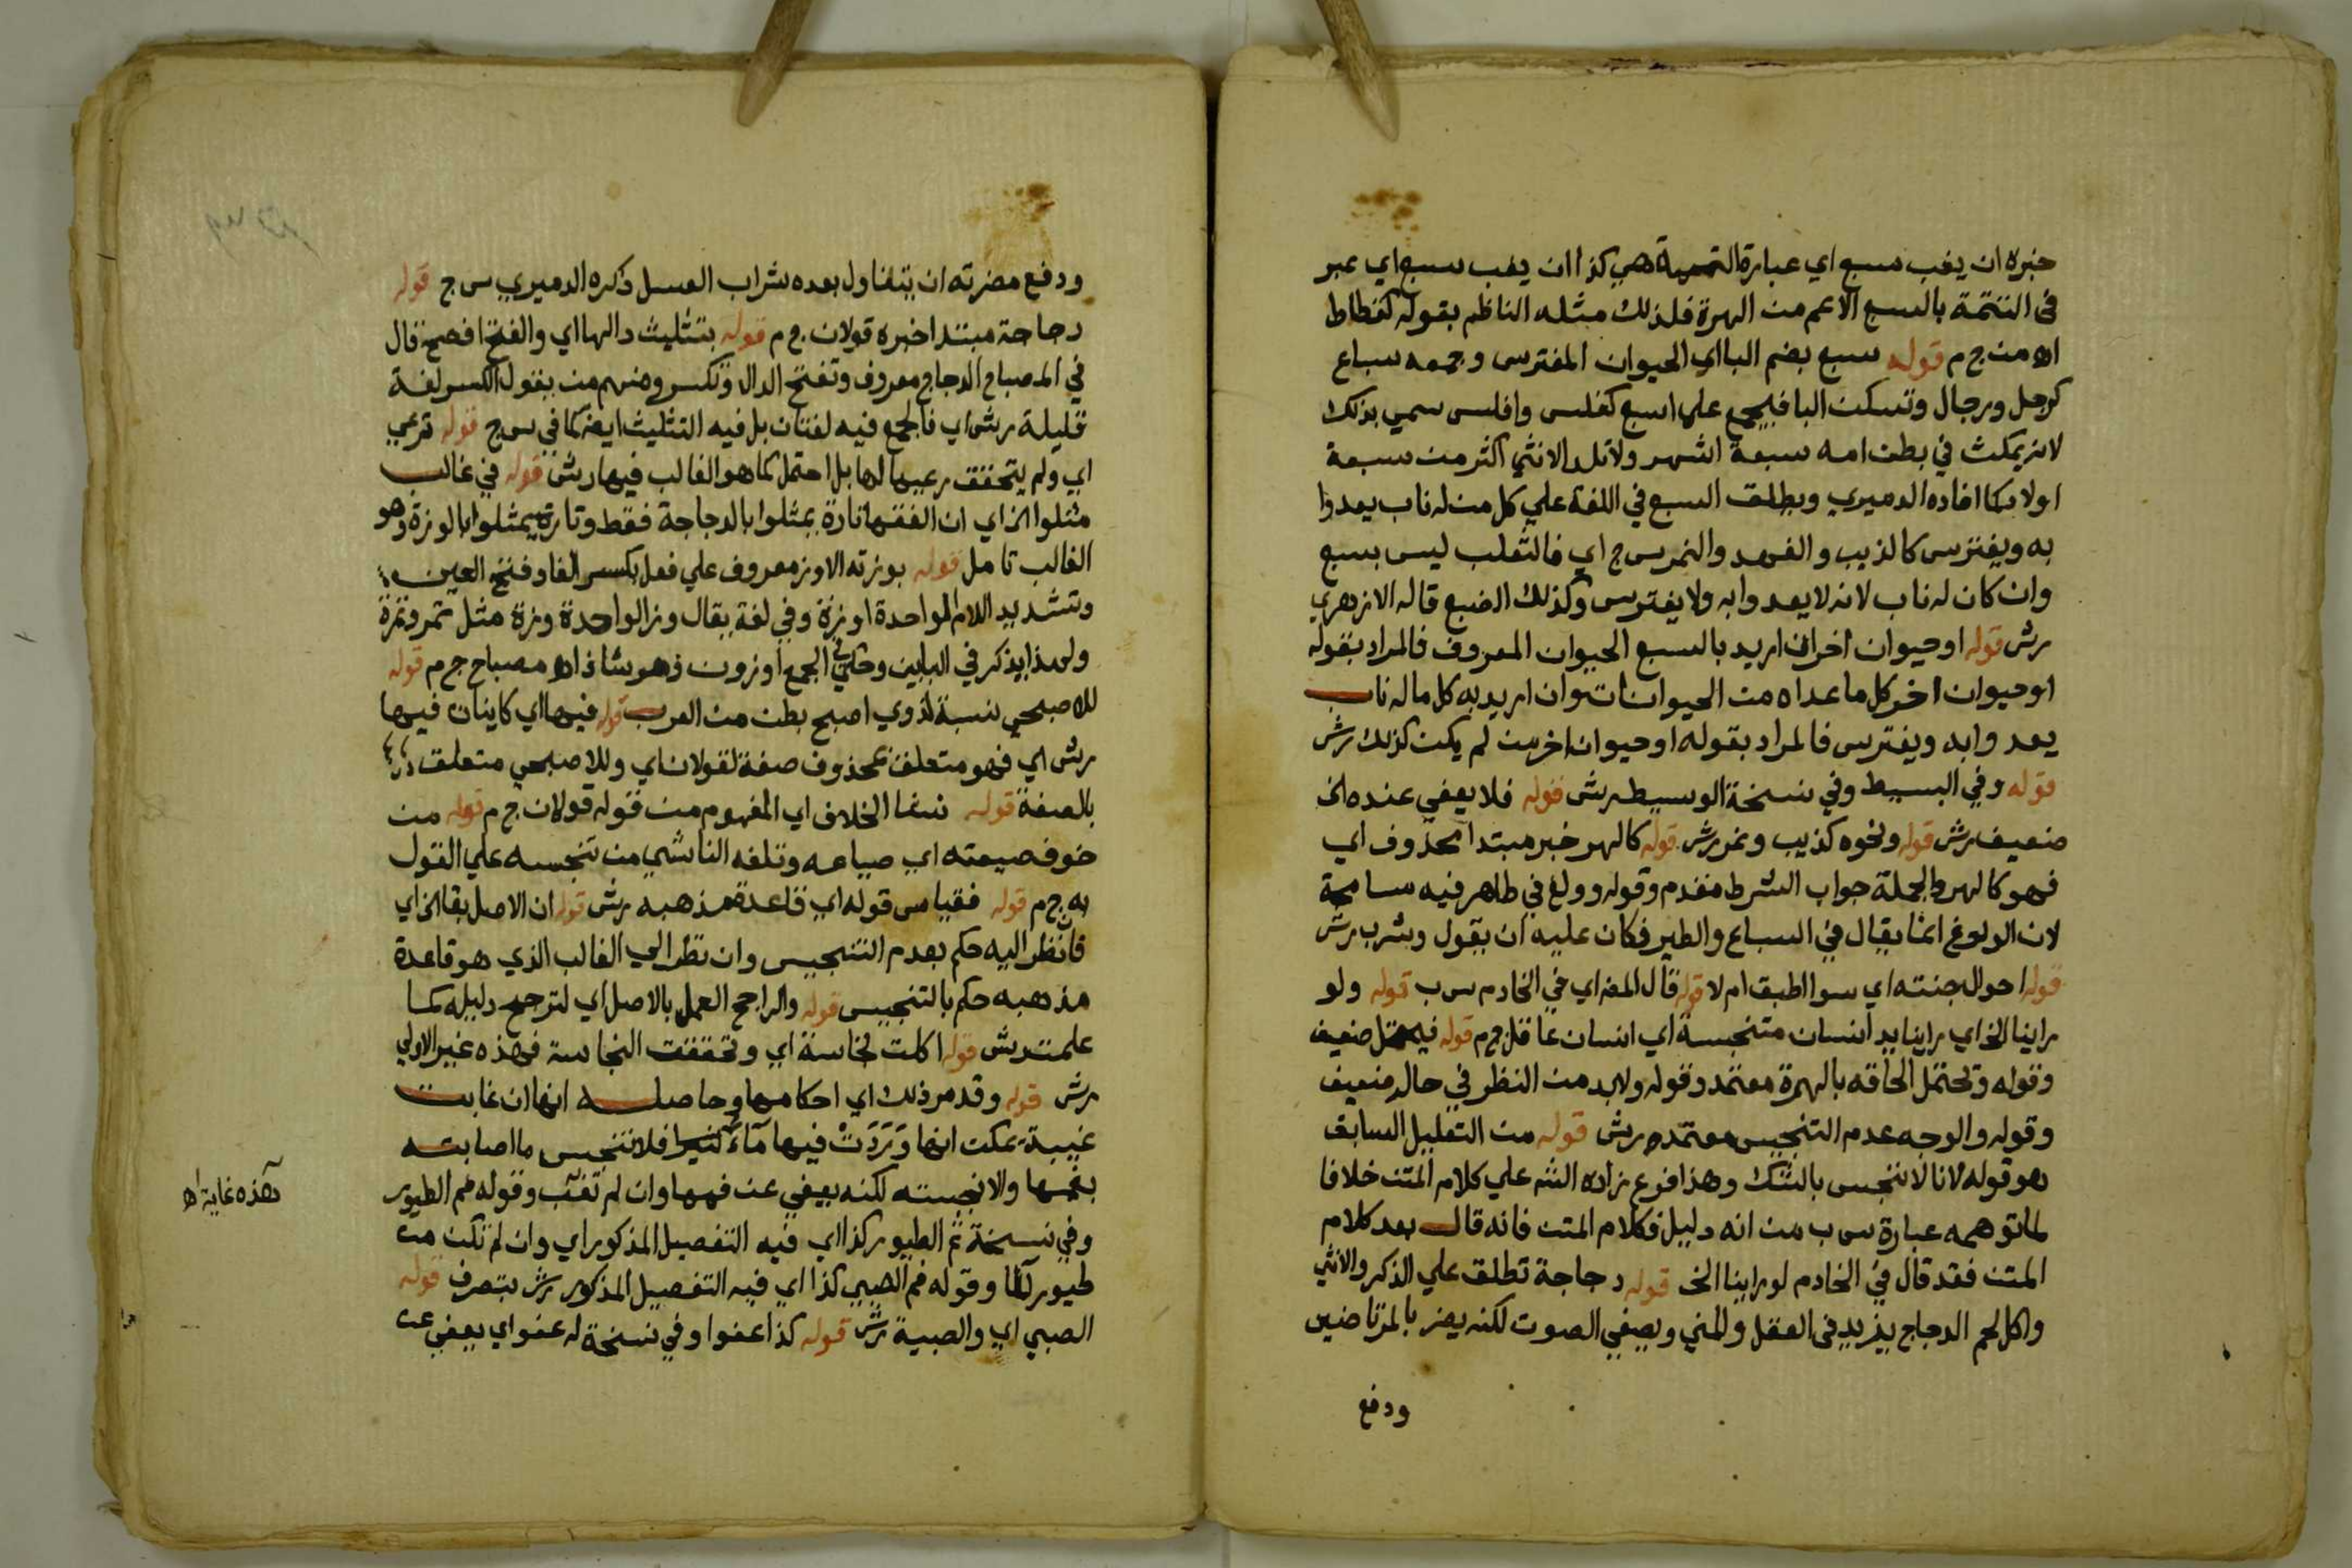 خبره ان يغب سبع اي عبارة التتمة هي كذا ان يغب سبع اي عبر
في التتمة بالسبع الاعم من الهرة فلذلك مثله الناظم بقوله كقطاط
اه من ج م قوله سبع بضم الباء اي الحيوان المفترس وجمعه سباع
كرجل ورجال وتسكن البا فيجمع على اسبع كفلس وافلس سمي بذلك
لانه يمكث في بطن امه سبعة اشهر ولا تلد الانثي اكثر من سبعة
اولاد كما افاده الدميري ويطلق السبع في اللغة علي كل من له ناب يعدوا
به ويفترس كالذيب والفهد والنمر س ج اي فالثعلب ليس بسبع
وان كان له ناب لانه لا يعدوا به ولا يفترس وكذلك الضبع قاله الازهري
رش قوله او حيوان اخر ان اريد بالسبع الحيوان المعروف فالمراد بقوله
او حيوان اخر كل ما عداه من الحيوانات وان اريد به كل ما له ناب
يعدوا به ويفترس فالمراد بقوله او حيوان اخر من لم يكن كذلك رش
قوله وفي البسيط وفي نسخة الوسيط رش قوله فلا يعفي عنده الخ
ضعيف رش قوله ونحوه كذيب ونمر رش قوله كالهر خبر مبتدا محذوف اي
فهو كالهر والجملة جواب الشرط متقدم وقوله وولغ في طاهر فيه سامحة
لان الولوغ انما يقال في السباع والطير فكان عليه ان يقول وشرب رش
قوله احوال جنته اي سوا اطبق ام لا قوله قال المغ اي في الخادم س ب قوله ولو
راينا الخ اي راينا يد انسان متنجسة اي انسان عاقل ج م قوله فيحتمل ضعيف
وقوله وتحتمل الحاقه بالهرة معتمد وقوله ولابد من النظر في حاله ضعيف
وقوله والوجه عدم التنجيس معتمد رش قوله من التعليل السابق
هو قوله لانا لا ننجس بالشك وهذا فرع زاده الشم علي كلام المتن خلافا
لما توهمه عبارة س ب من انه دليل فكلام المتن فانه قال بعد كلام
المتن فقد قال في الخادم لو راينا الخ قوله دجاجة تطلق علي الذكر والانثي
واكل لحم الدجاج يزيد في العقل والمني ويصفي الصوت لكنه يضر بالمرتاضين
ودفع
ودفع مضرته ان يتناول بعده شراب العسل ذكره الدميري س ج قوله
دجاجة مبتدا خبره قولان ج م قوله بتثليث دالها اي والفتح افصح قال
في المصباح الدجاج معروف وتفتح الدال وتكسر ومنهم من يقول الكسر لغة
قليلة رش اي فالجمع فيه لغتان بل فيه التثليث ايضا كما في س ج قوله ترعي
اي ولم يتحقق رعيها لها بل احتمل كما هو الغالب فيها رش قوله في غالب
مثلوا الخ اي ان الفقها تارة يمثلوا بالدجاجة فقط وتارة يمثلوا بالوزة وهو
الغالب تامل قوله بوزته الاوز معروف علي فعل بكسر الفا وفتح العين
وتشديد اللام الواحدة اوزة وفي لغة يقال وز الواحدة وزة مثل تمر وتمرة
ولهذا يذكر في البابين وحكي في الجمع اوزون وهو شاذ اه مصباح ج م قوله
للاصبحي نسبة لذوي اصبح بطن من العرب قوله فيها اي كاينان فيها
رش اي فهو متعلق بمحذوف صفة لقولان اي وللاصبحي متعلق
بالصفة قوله نشا الخلاف اي المفهوم من قوله قولان ج م قوله من
خوف ضيعته اي ضياعه وتلفه الناشي من تنجسه علي القول
به ج م قوله فقياس قوله اي قاعدة مذهبه رش قوله ان الاصل بقا الخ اي
فان نظر اليه حكم بعدم التنجيس وان نظر الي الغالب الذي هو قاعدة
مذهبه حكم بالتنجيس قوله والراجح العمل بالاصل اي لترجح دليله كما
علمت رش قوله اكلت نجاسة اي وتحققت النجاسة فهذه غير الاولي
رش قوله وقد مر ذلك اي احكامها وحاصله انها ان غابت
غيبة يمكن انها وَرَدَتْ فيها مآءً كثيرا فلا تنجس ما اصابته
بفمها والا نجسته لكنه يعفي عن فمها وان لم تغب وقوله فم الطيور
هذه غاية اه
وفي نسخة ثم الطيور كذا اي فيه التفصيل المذكور اي وان لم تكن من
طيور الما وقوله فم الصبي كذا اي فيه التفصيل المذكور رش بتصرف قوله
الصبي اي والصبية رش قوله كذا عفوا وفي نسخة له عفو اي يعفي عن